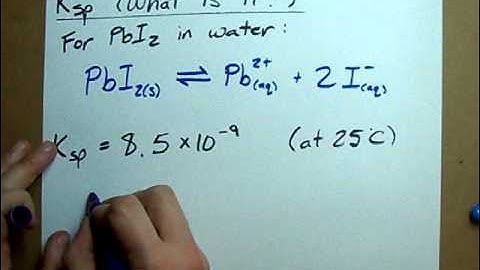 Ksp (What is it?)
For PbI2 in water:
PbI2(s) ⇌ Pb2+(aq) + 2 I-(aq)
Ksp = 8.5 × 10-9 (at 25°C)